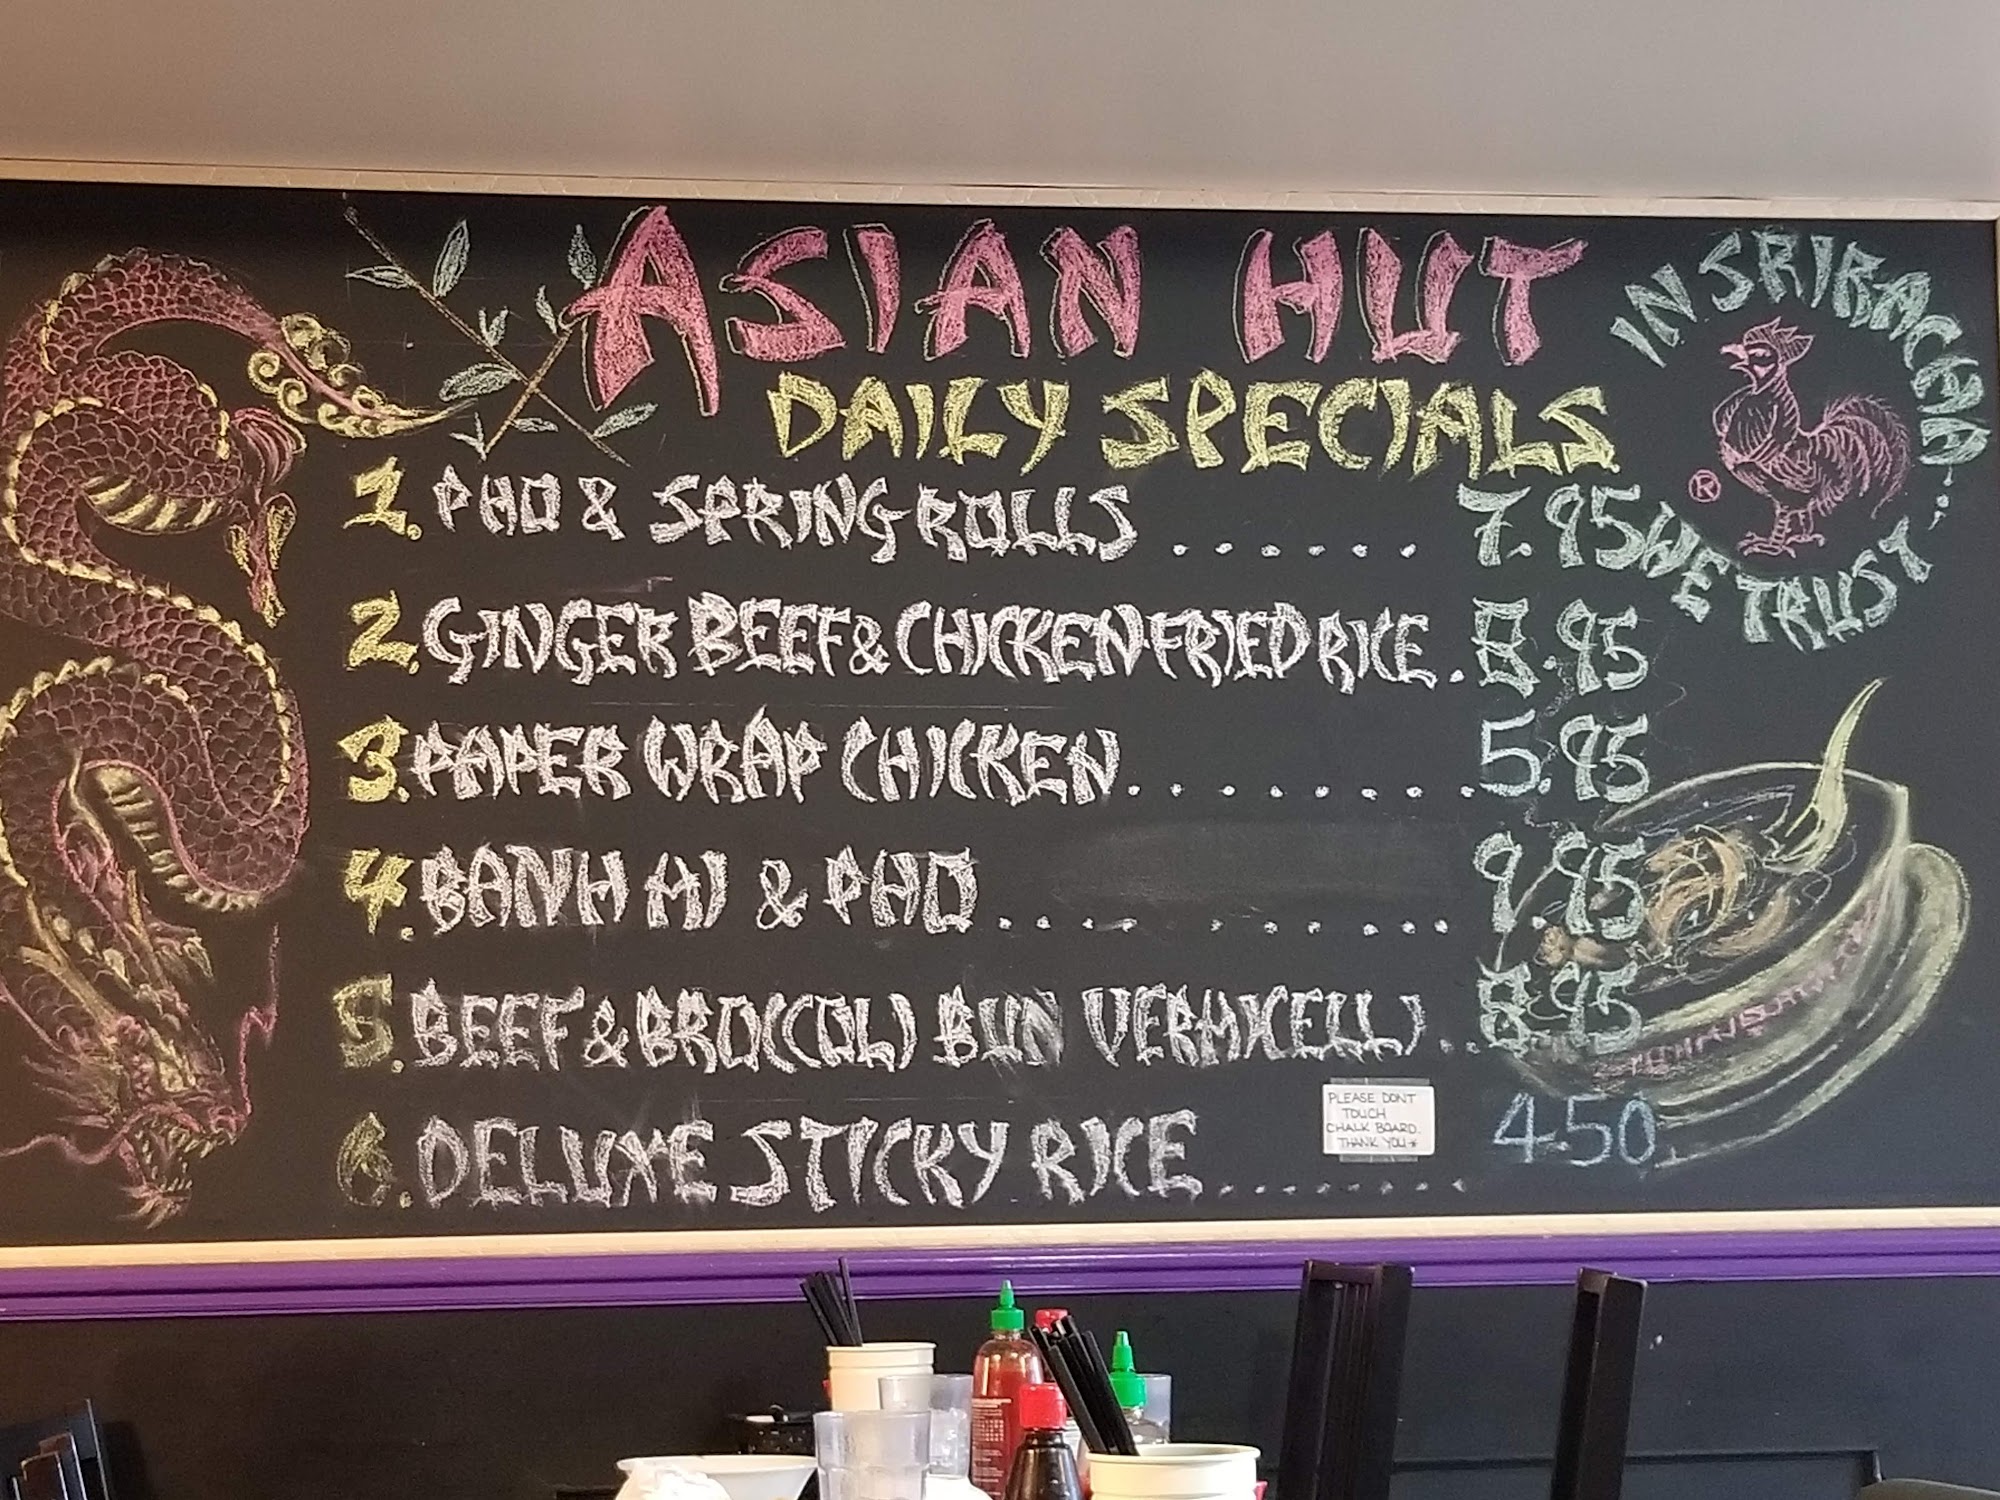 ASIAN HUT
DAILY SPECIALS
1. PHO & SPRING ROLLS ...... 7.95
2. GINGER BEEF & CHICKEN FRIED RICE . 8.95
3. PAPER WRAP CHICKEN ........ 5.95
4. BANH MI & PHO .......... 9.95
5. BEEF & BROCCOLI BUN VERMICELLI .. 8.95
6. DELUXE STICKY RICE ........ 4.50
IN SRIRACHA...
®
WE TRUST
PLEASE DONT
TOUCH
CHALK BOARD.
THANK YOU *